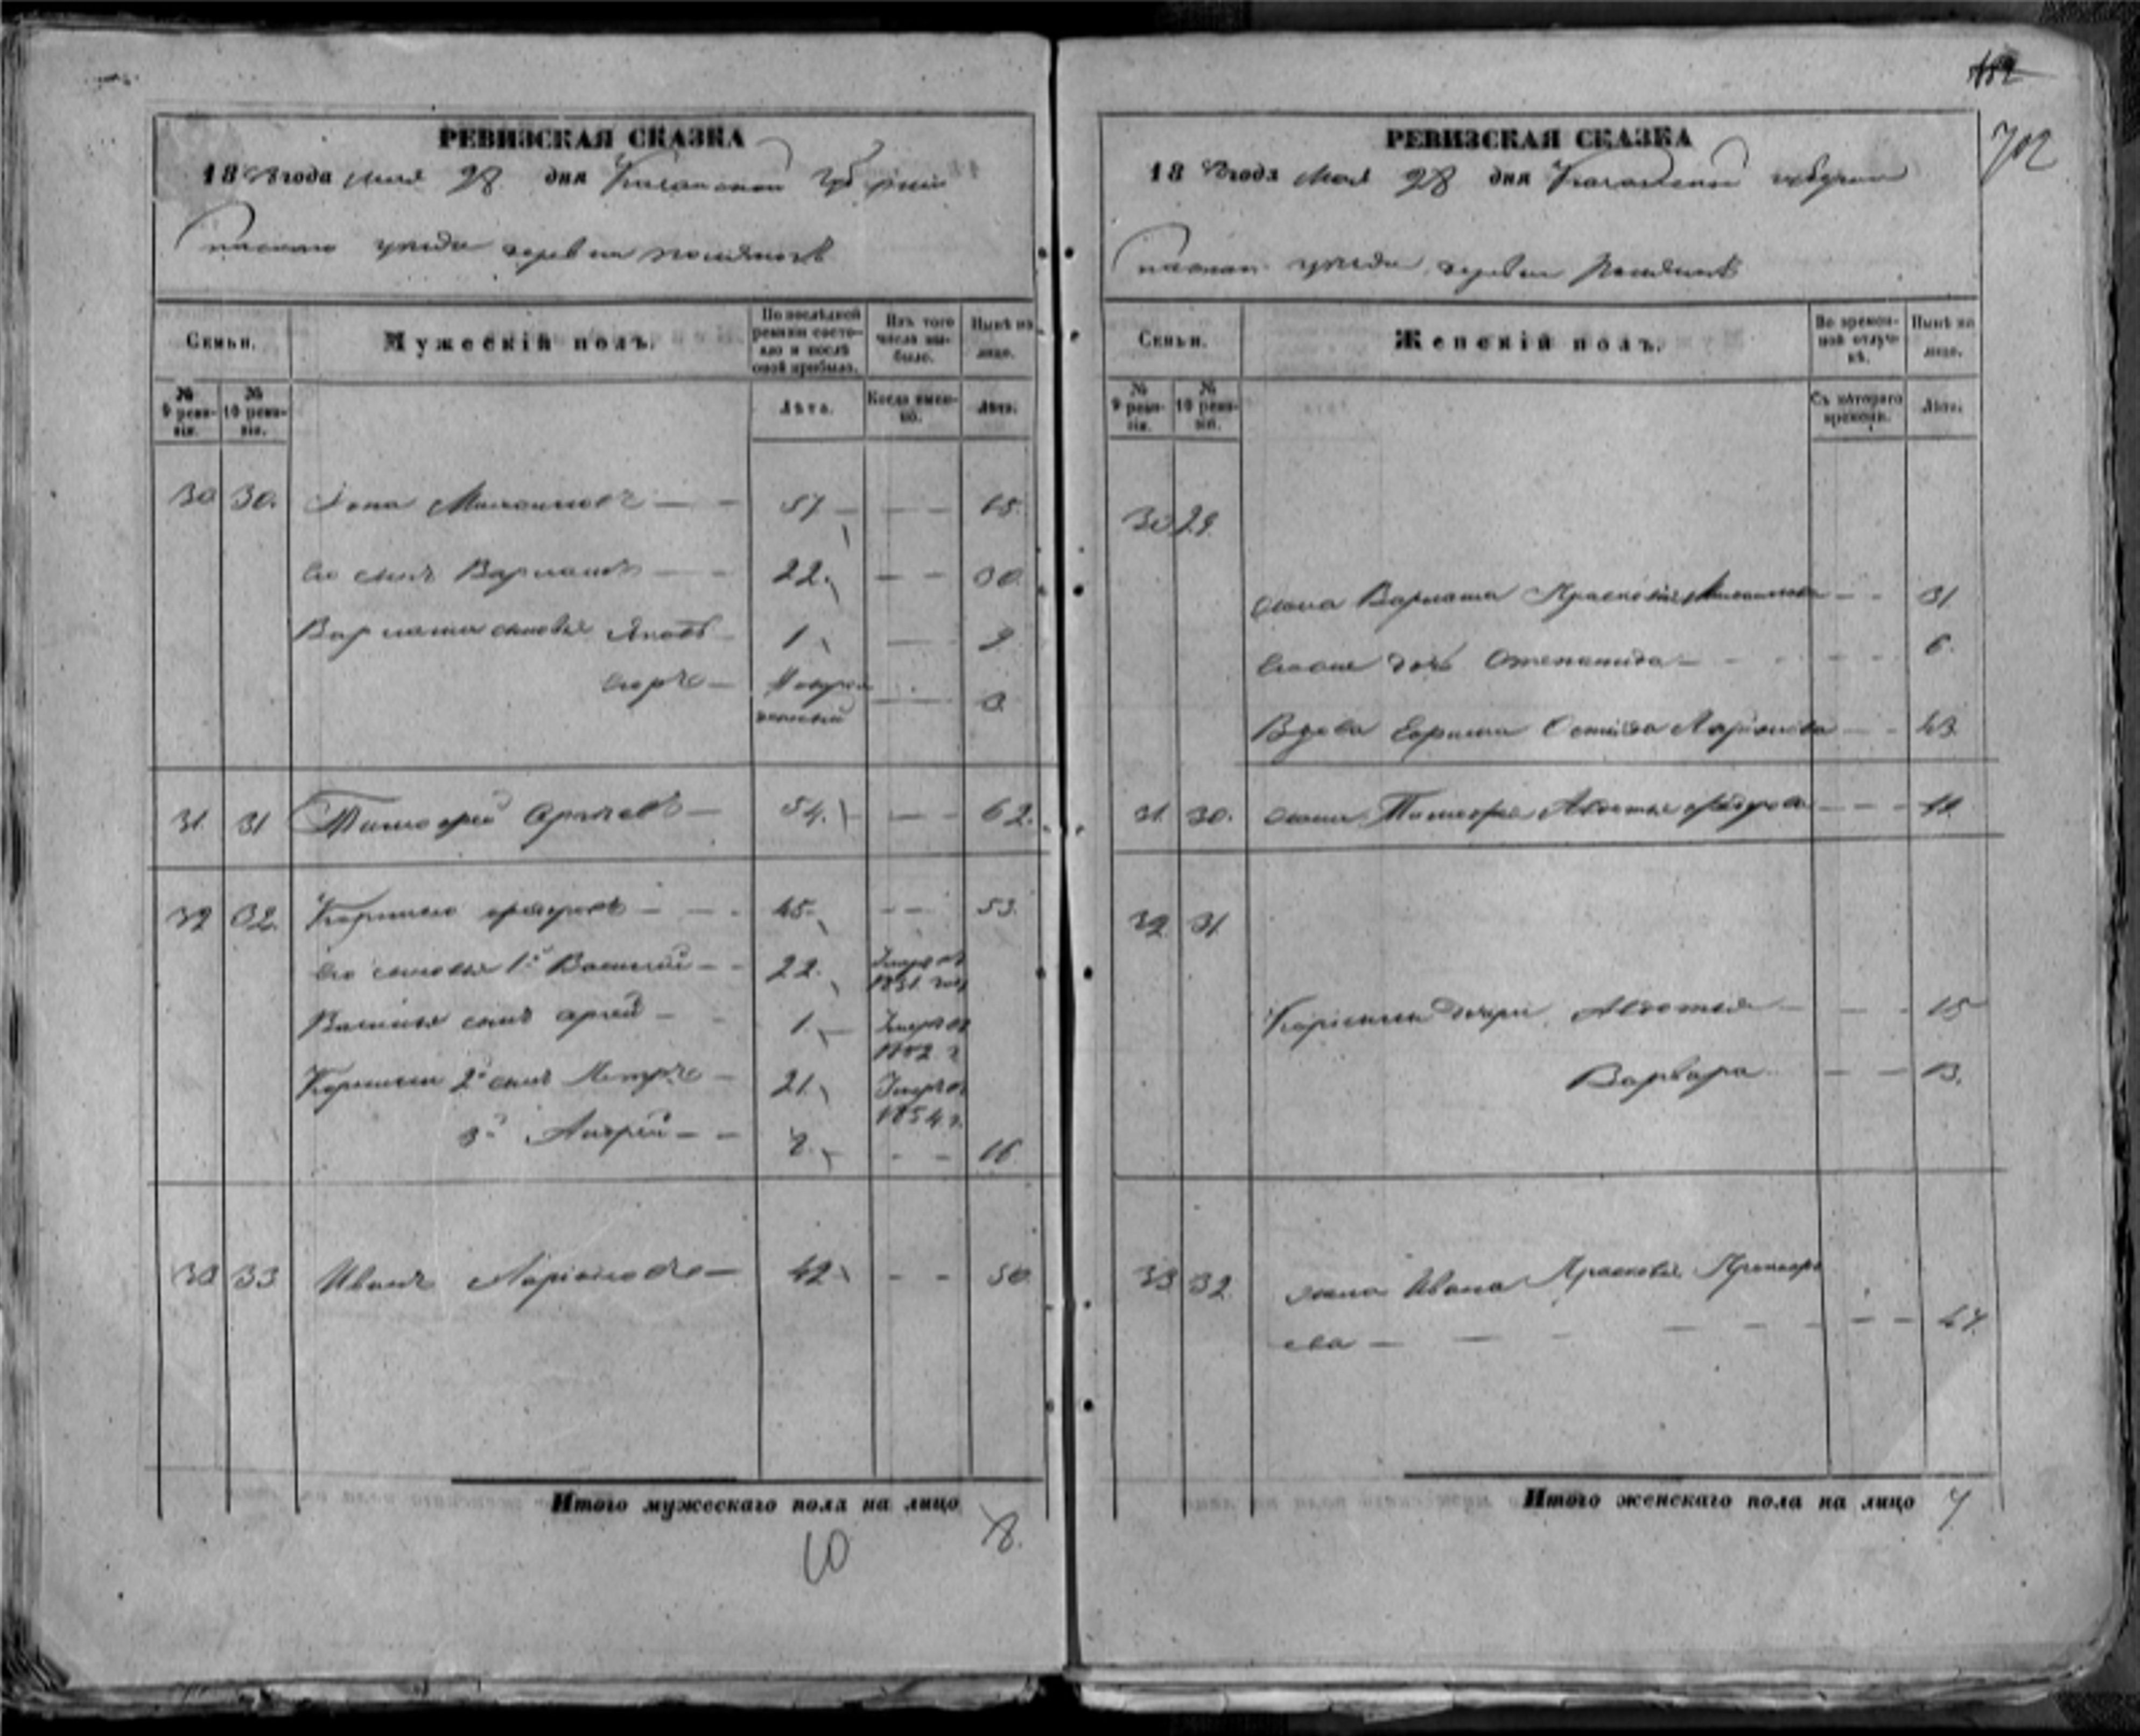 РЕВИЗСКАЯ СКАЗКА
1858 года мая 28 дня Казанской губернiи
уезда деревни
Семьи.
Мужескiй полъ.
По послѣдней ревизiи состояло и послѣ оной прибыло.
Изъ того числа выбыло.
Нынѣ на лицо.
№ 9 ревизiи.
№ 10 ревизiи.
Лѣта.
Когда именно.
Лѣта.
30 30. Iона — — 51 — — — 65.
Его сынъ Варламъ — — 22. — — 30.
Варлама сыновья Яковъ — 1 — 9
Егоръ — Новорожденный — 3.
31. 31 Тимофей — 54. — — 62.
32 32. Корнило Федоровъ — — — 45. — — 53.
Его сыновья 1й Василiй — — 22. Умеръ въ 1851 году
Василья сынъ — — 1. — Умеръ въ 1852 г
Корнилы 2й сынъ Петръ — 21. Умеръ въ 1854 г.
3й Андрей — — 8. — — 16
33 33 Иванъ Ларiоновъ — 42. — — 50.
Итого мужескаго пола на лицо 8.
10
702
РЕВИЗСКАЯ СКАЗКА
1858 года мая 28 дня Казанской губернiи
уезда деревни
Семьи.
Женскiй полъ.
Во временной отлучкѣ.
Нынѣ на лицо.
№ 9 ревизiи.
№ 10 ревизiи.
Съ котораго времени.
Лѣта.
30 29.
жена Варлама Прасковья — — 31
дочь Степанида — — — 6.
Вдова Ларiонова — — 43.
31. 30. жена Тимофея Авдотья Федорова — — —
32. 31.
Корнилы дочери Авдотья — — — 15
Варвара — — 13.
33 32. жена Ивана Прасковья Прохоро
ва — — — — — — — — 47.
Итого женскаго пола на лицо 7